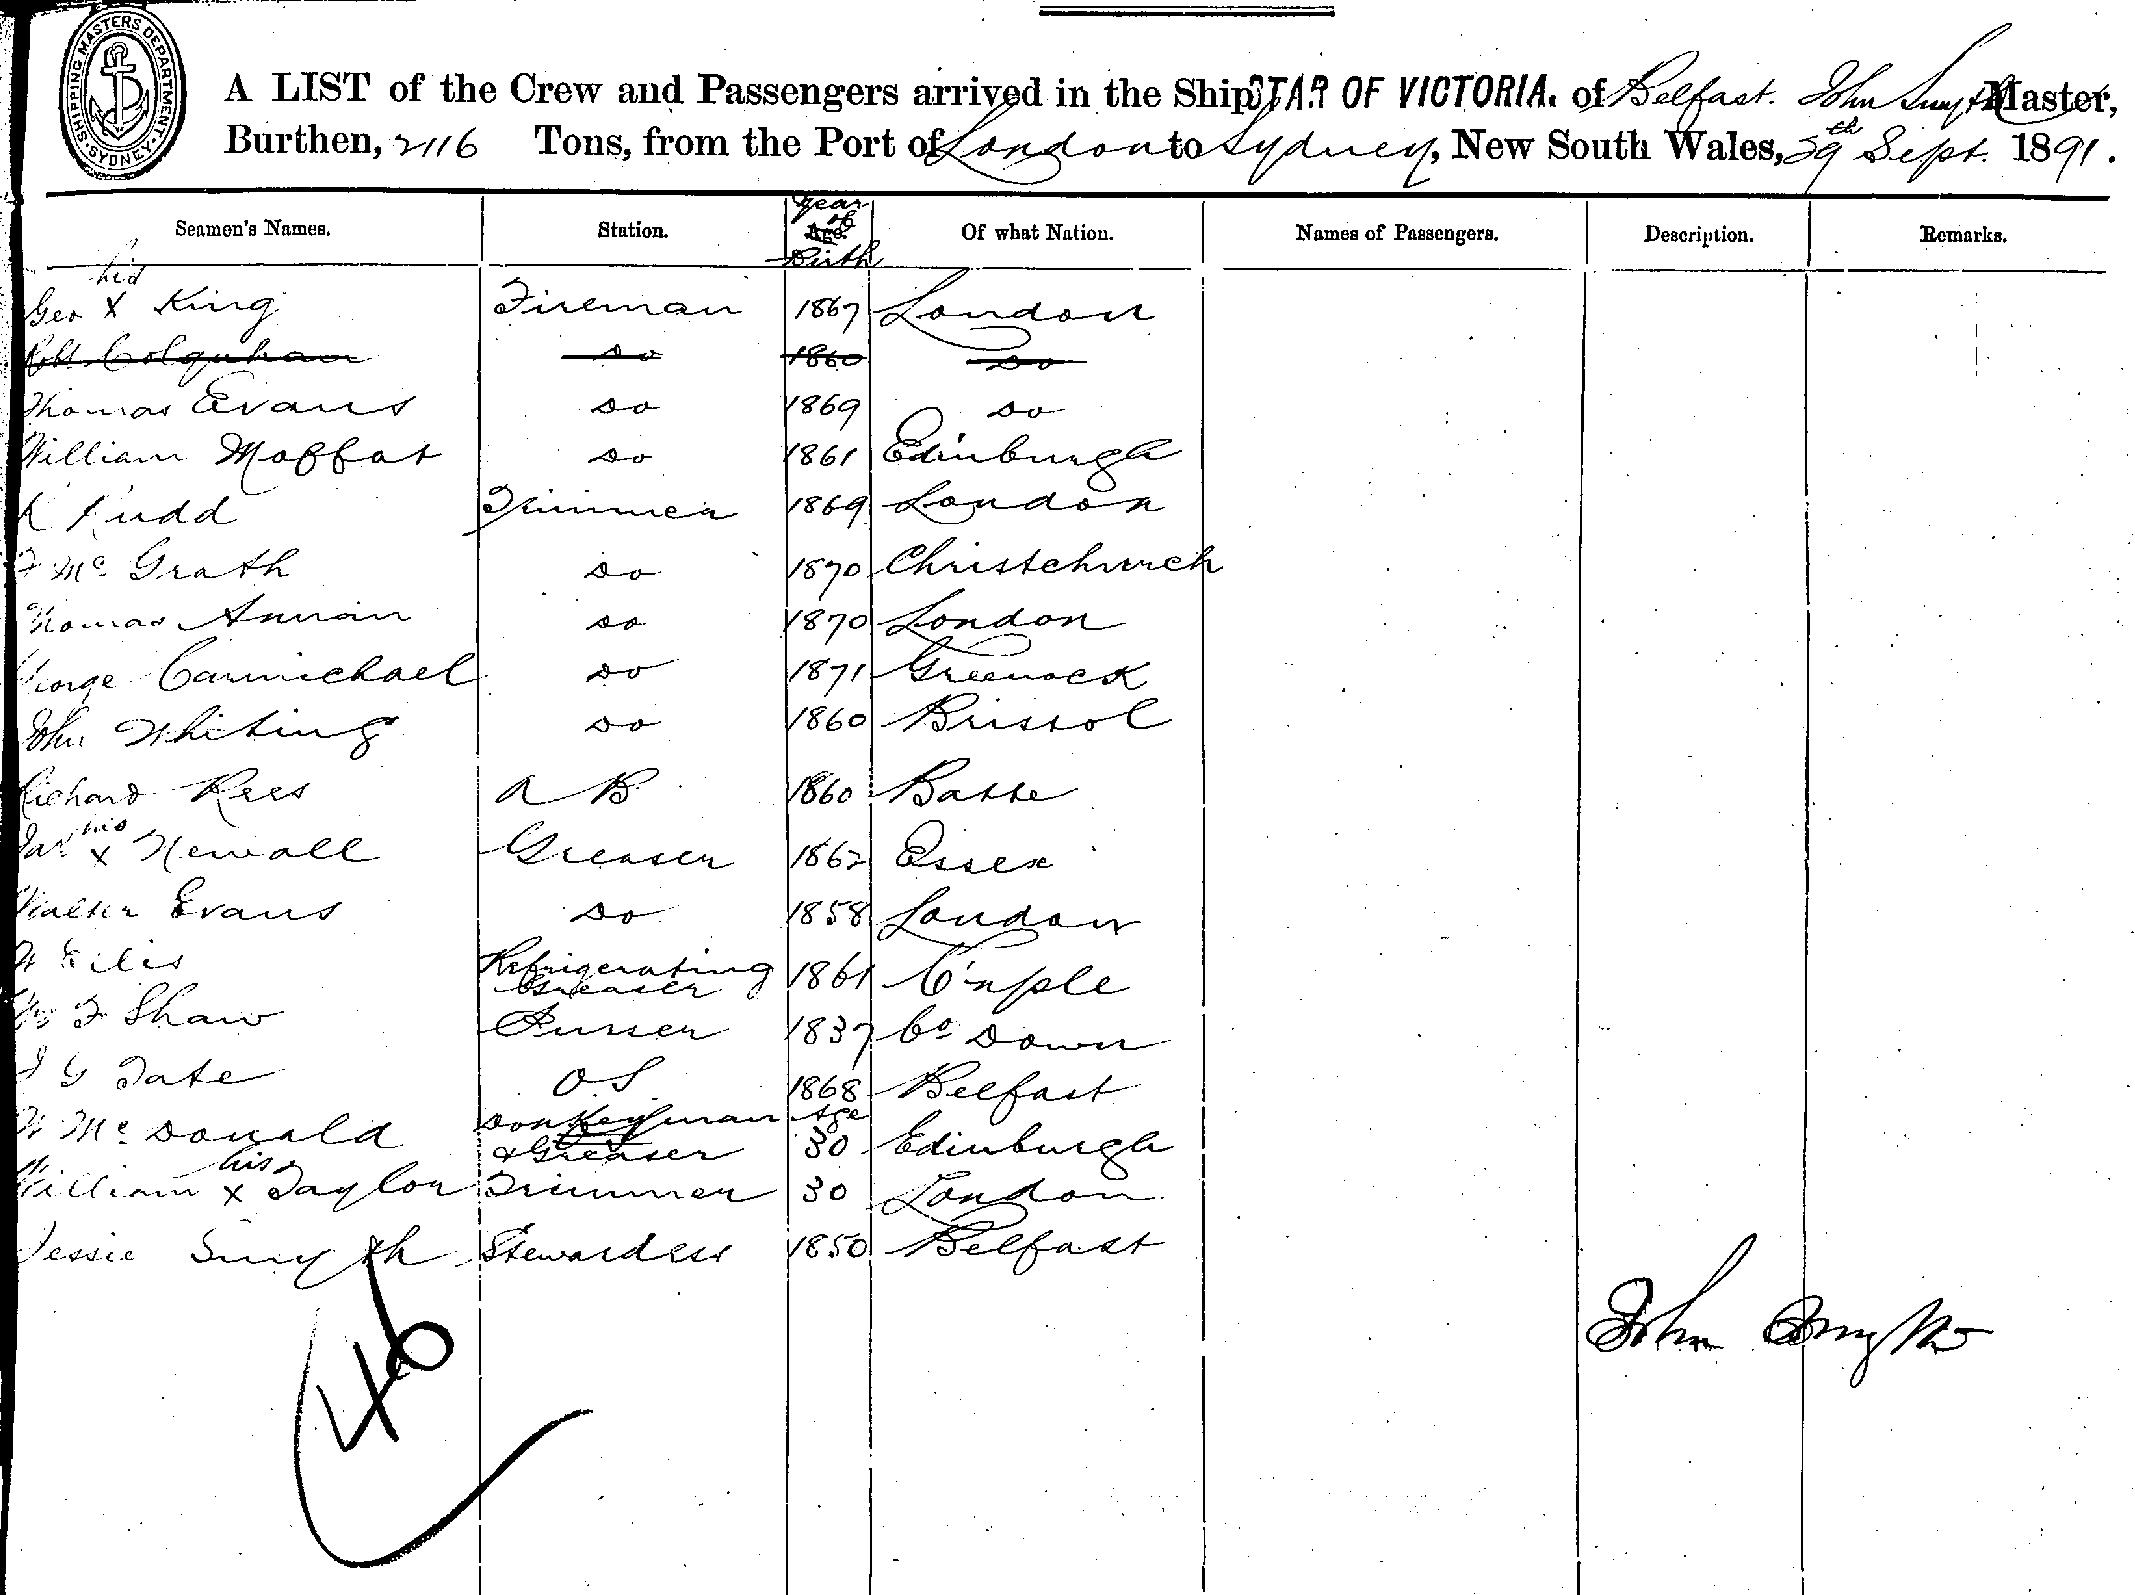 SHIPPING MASTERS DEPARTMENT. SYDNEY.
A LIST of the Crew and Passengers arrived in the Ship STAR OF VICTORIA. of Belfast. John Smyth Master,
Burthen, 2116 Tons, from the Port of London to Sydney, New South Wales, 29th Sept. 1891.
Seamen's Names. Station. Year of Age. Birth Of what Nation. Names of Passengers. Description. Remarks.
his
Geo X King Fireman 1867 London
Robt Colquhoun do 1860 do
Thomas Evans do 1869 do
William Moffat do 1861 Edinburgh
Rudd Trimmer 1869 London
McGrath do 1870 Christchurch
Thomas Annan do 1870 London
George Carmichael do 1871 Greenock
John Whiting do 1860 Bristol
Richard Rees A B 1860
his
Jas X Newall Greaser 1862 Essex
Walter Evans do 1858 London
W Ellis Refrigerating Greaser 1861
F Shaw Purser 1837 Co Down
J G Tate O S 1868 Belfast
W McDonald Donkeyman & Greaser Age 30 Edinburgh
his
William X Taylor Trimmer 30 London
Jessie Smyth Stewardess 1850 Belfast
John Smyth
46